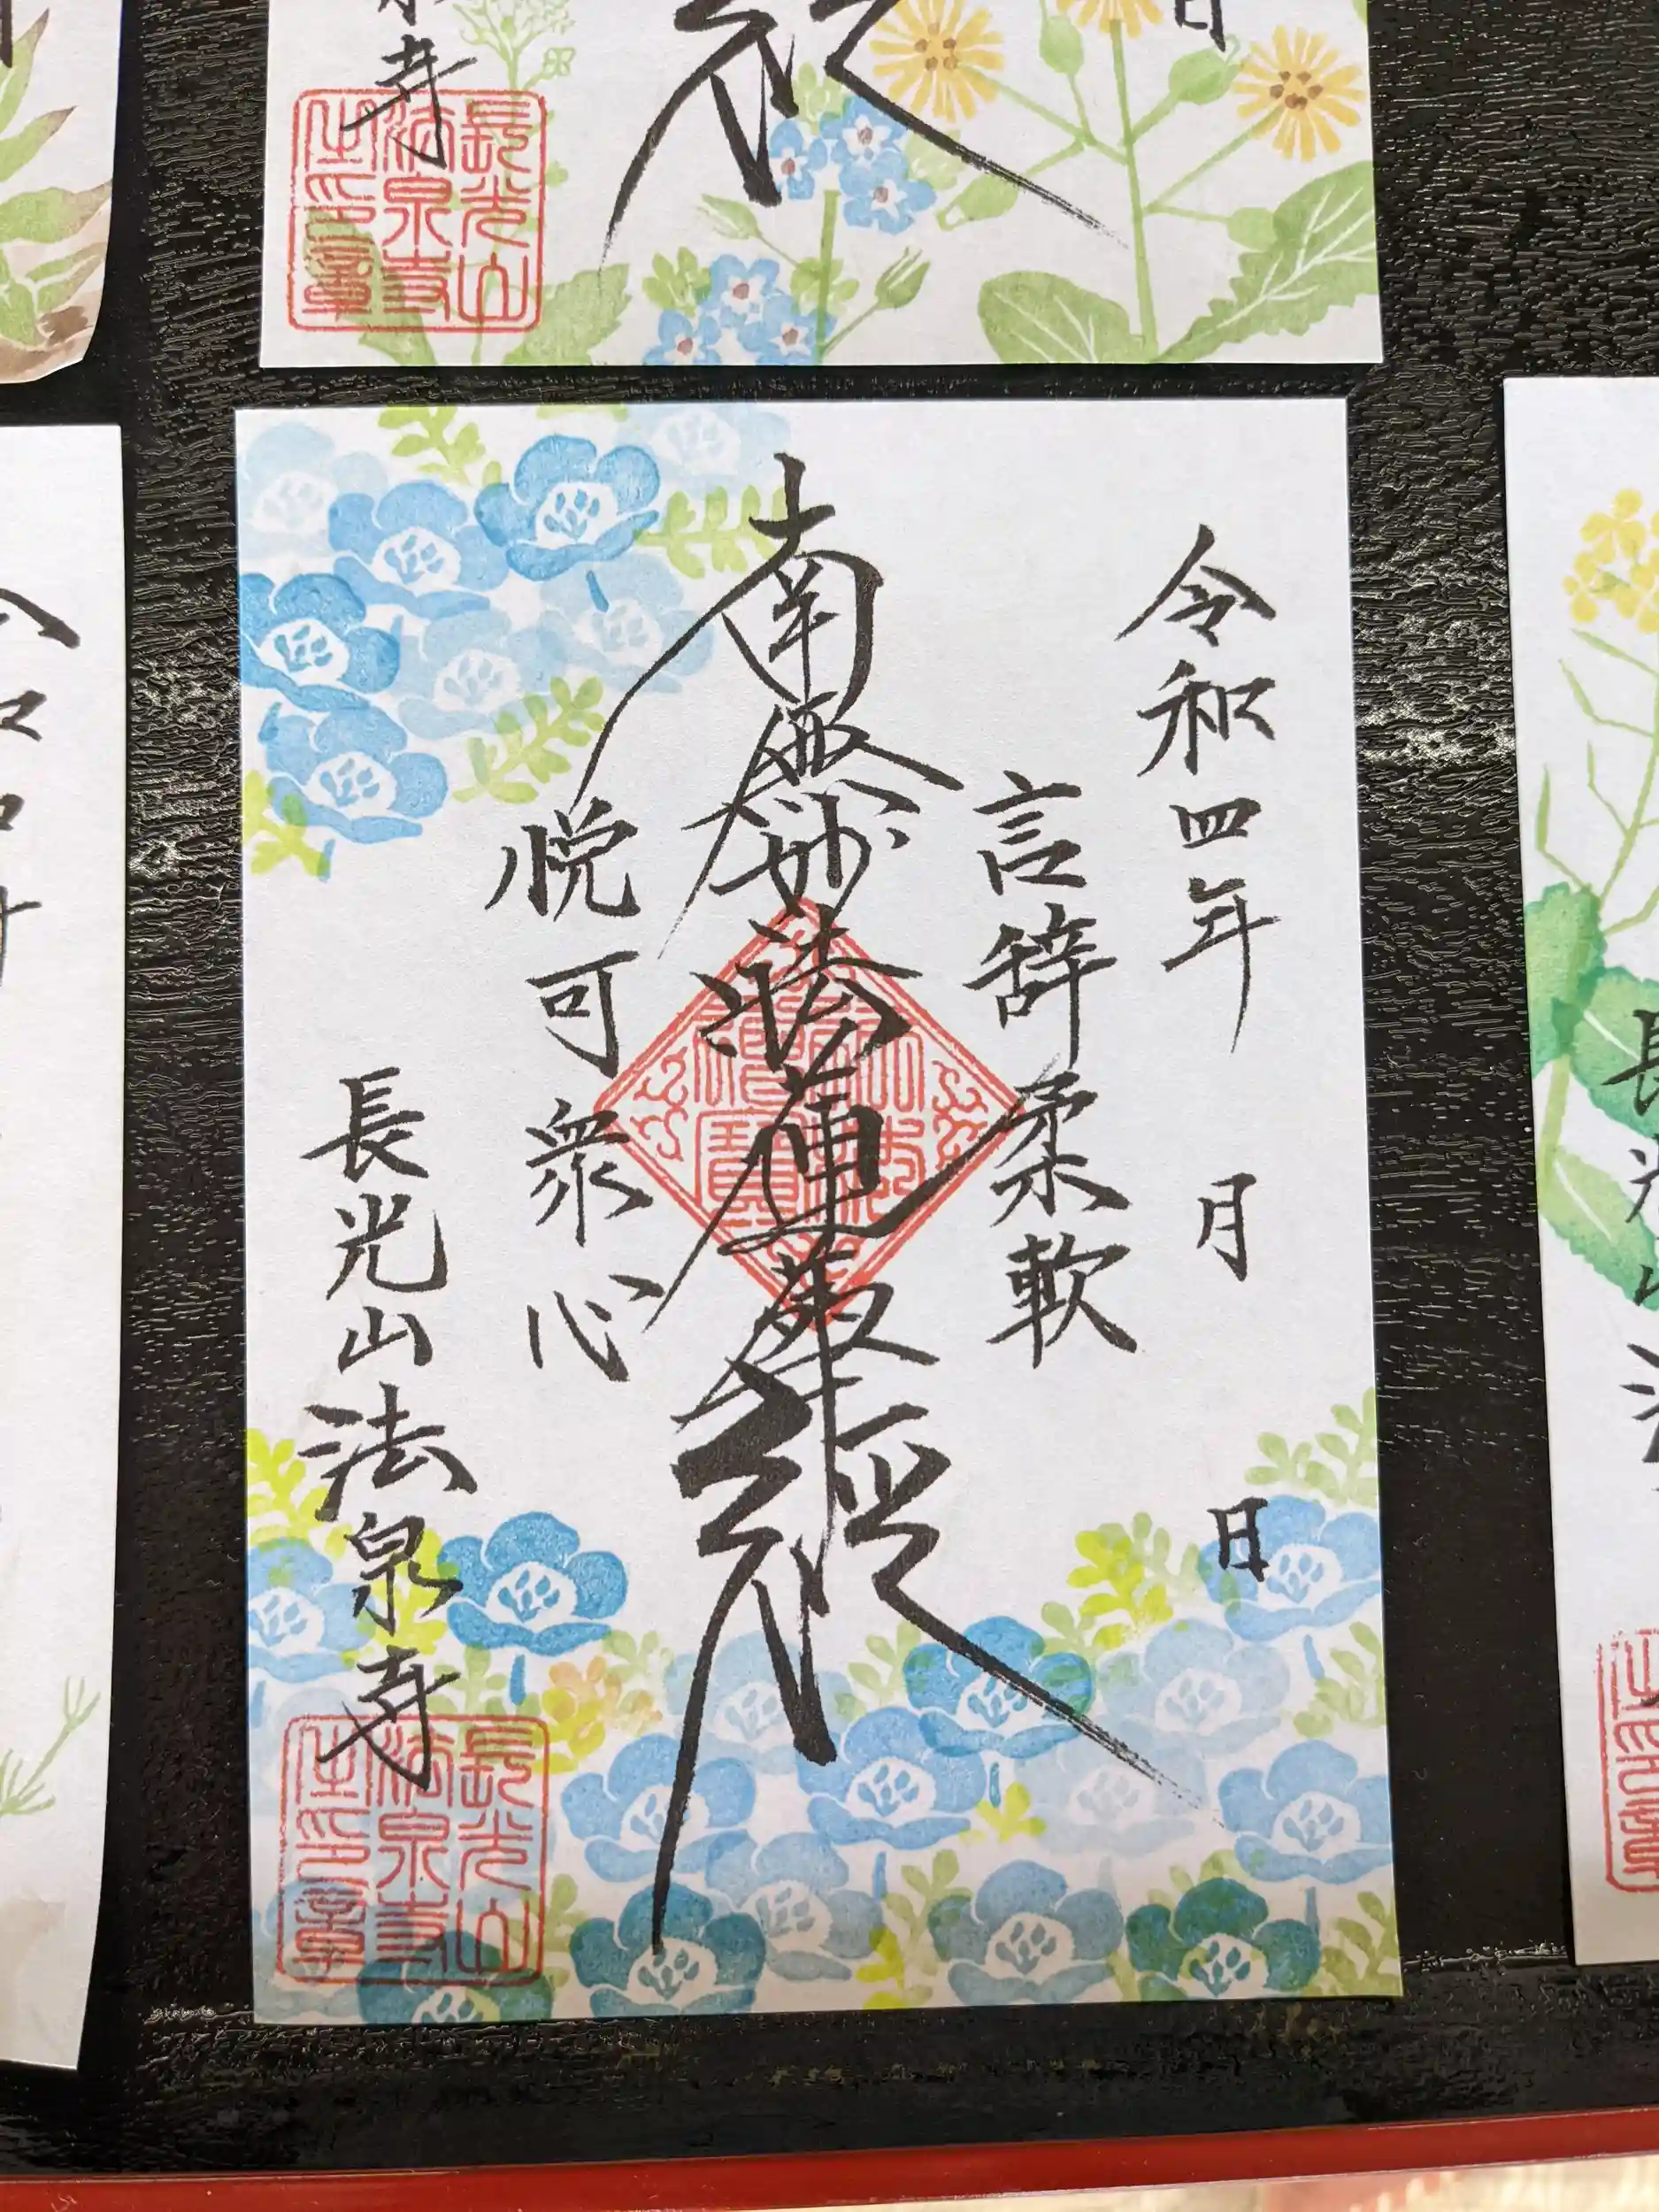 寺
長光山
法泉寺
之印章
日
令和四年 月 日
言辞柔軟
南無妙法蓮華経
悦可衆心
長光山法泉寺
長光山
法泉寺
之印章
令和四年
長光山法